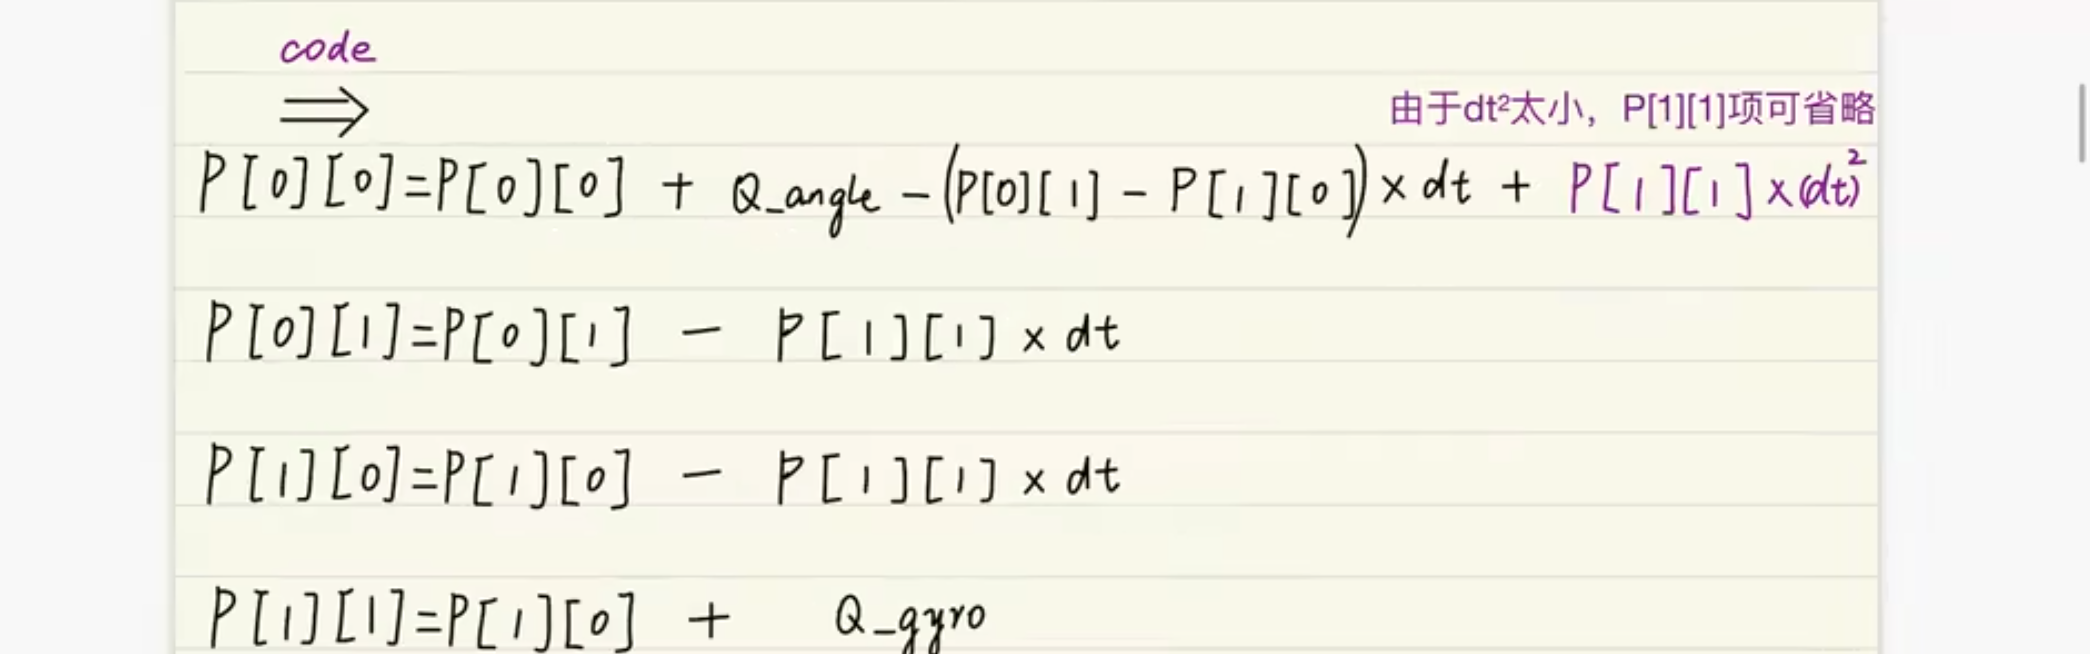 code
⇒
由于dt²太小，P[1][1]项可省略
P[0][0]=P[0][0] + Q_angle -(P[0][1] - P[1][0])×dt + P[1][1]×(dt)²
P[0][1]=P[0][1] - P[1][1]×dt
P[1][0]=P[1][0] - P[1][1]×dt
P[1][1]=P[1][0] + Q_gyro